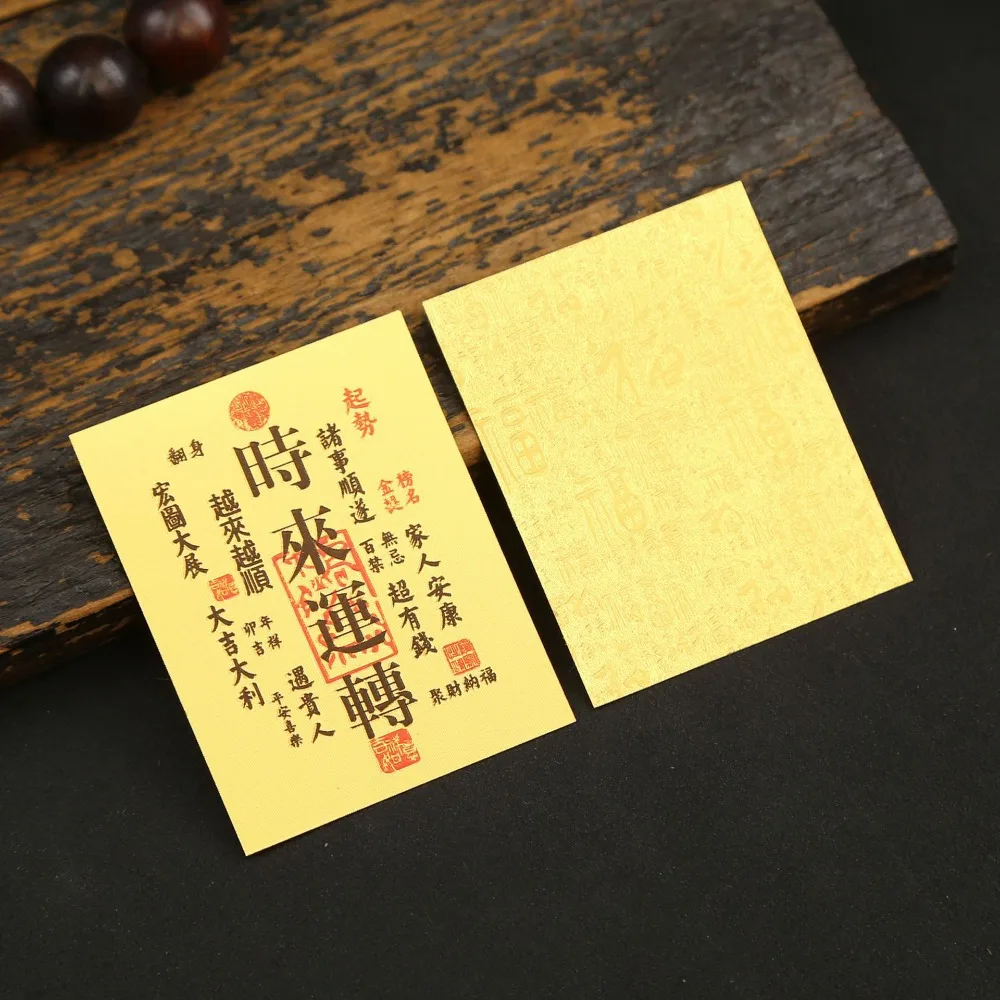 時來運轉
起勢
諸事順遂
榜名
金提
家人安康
無忌
百禁
超有錢
聚財納福
翻身
宏圖大展
越來越順
大吉大利
年祥
卯吉
遇貴人
平安喜樂
福
福